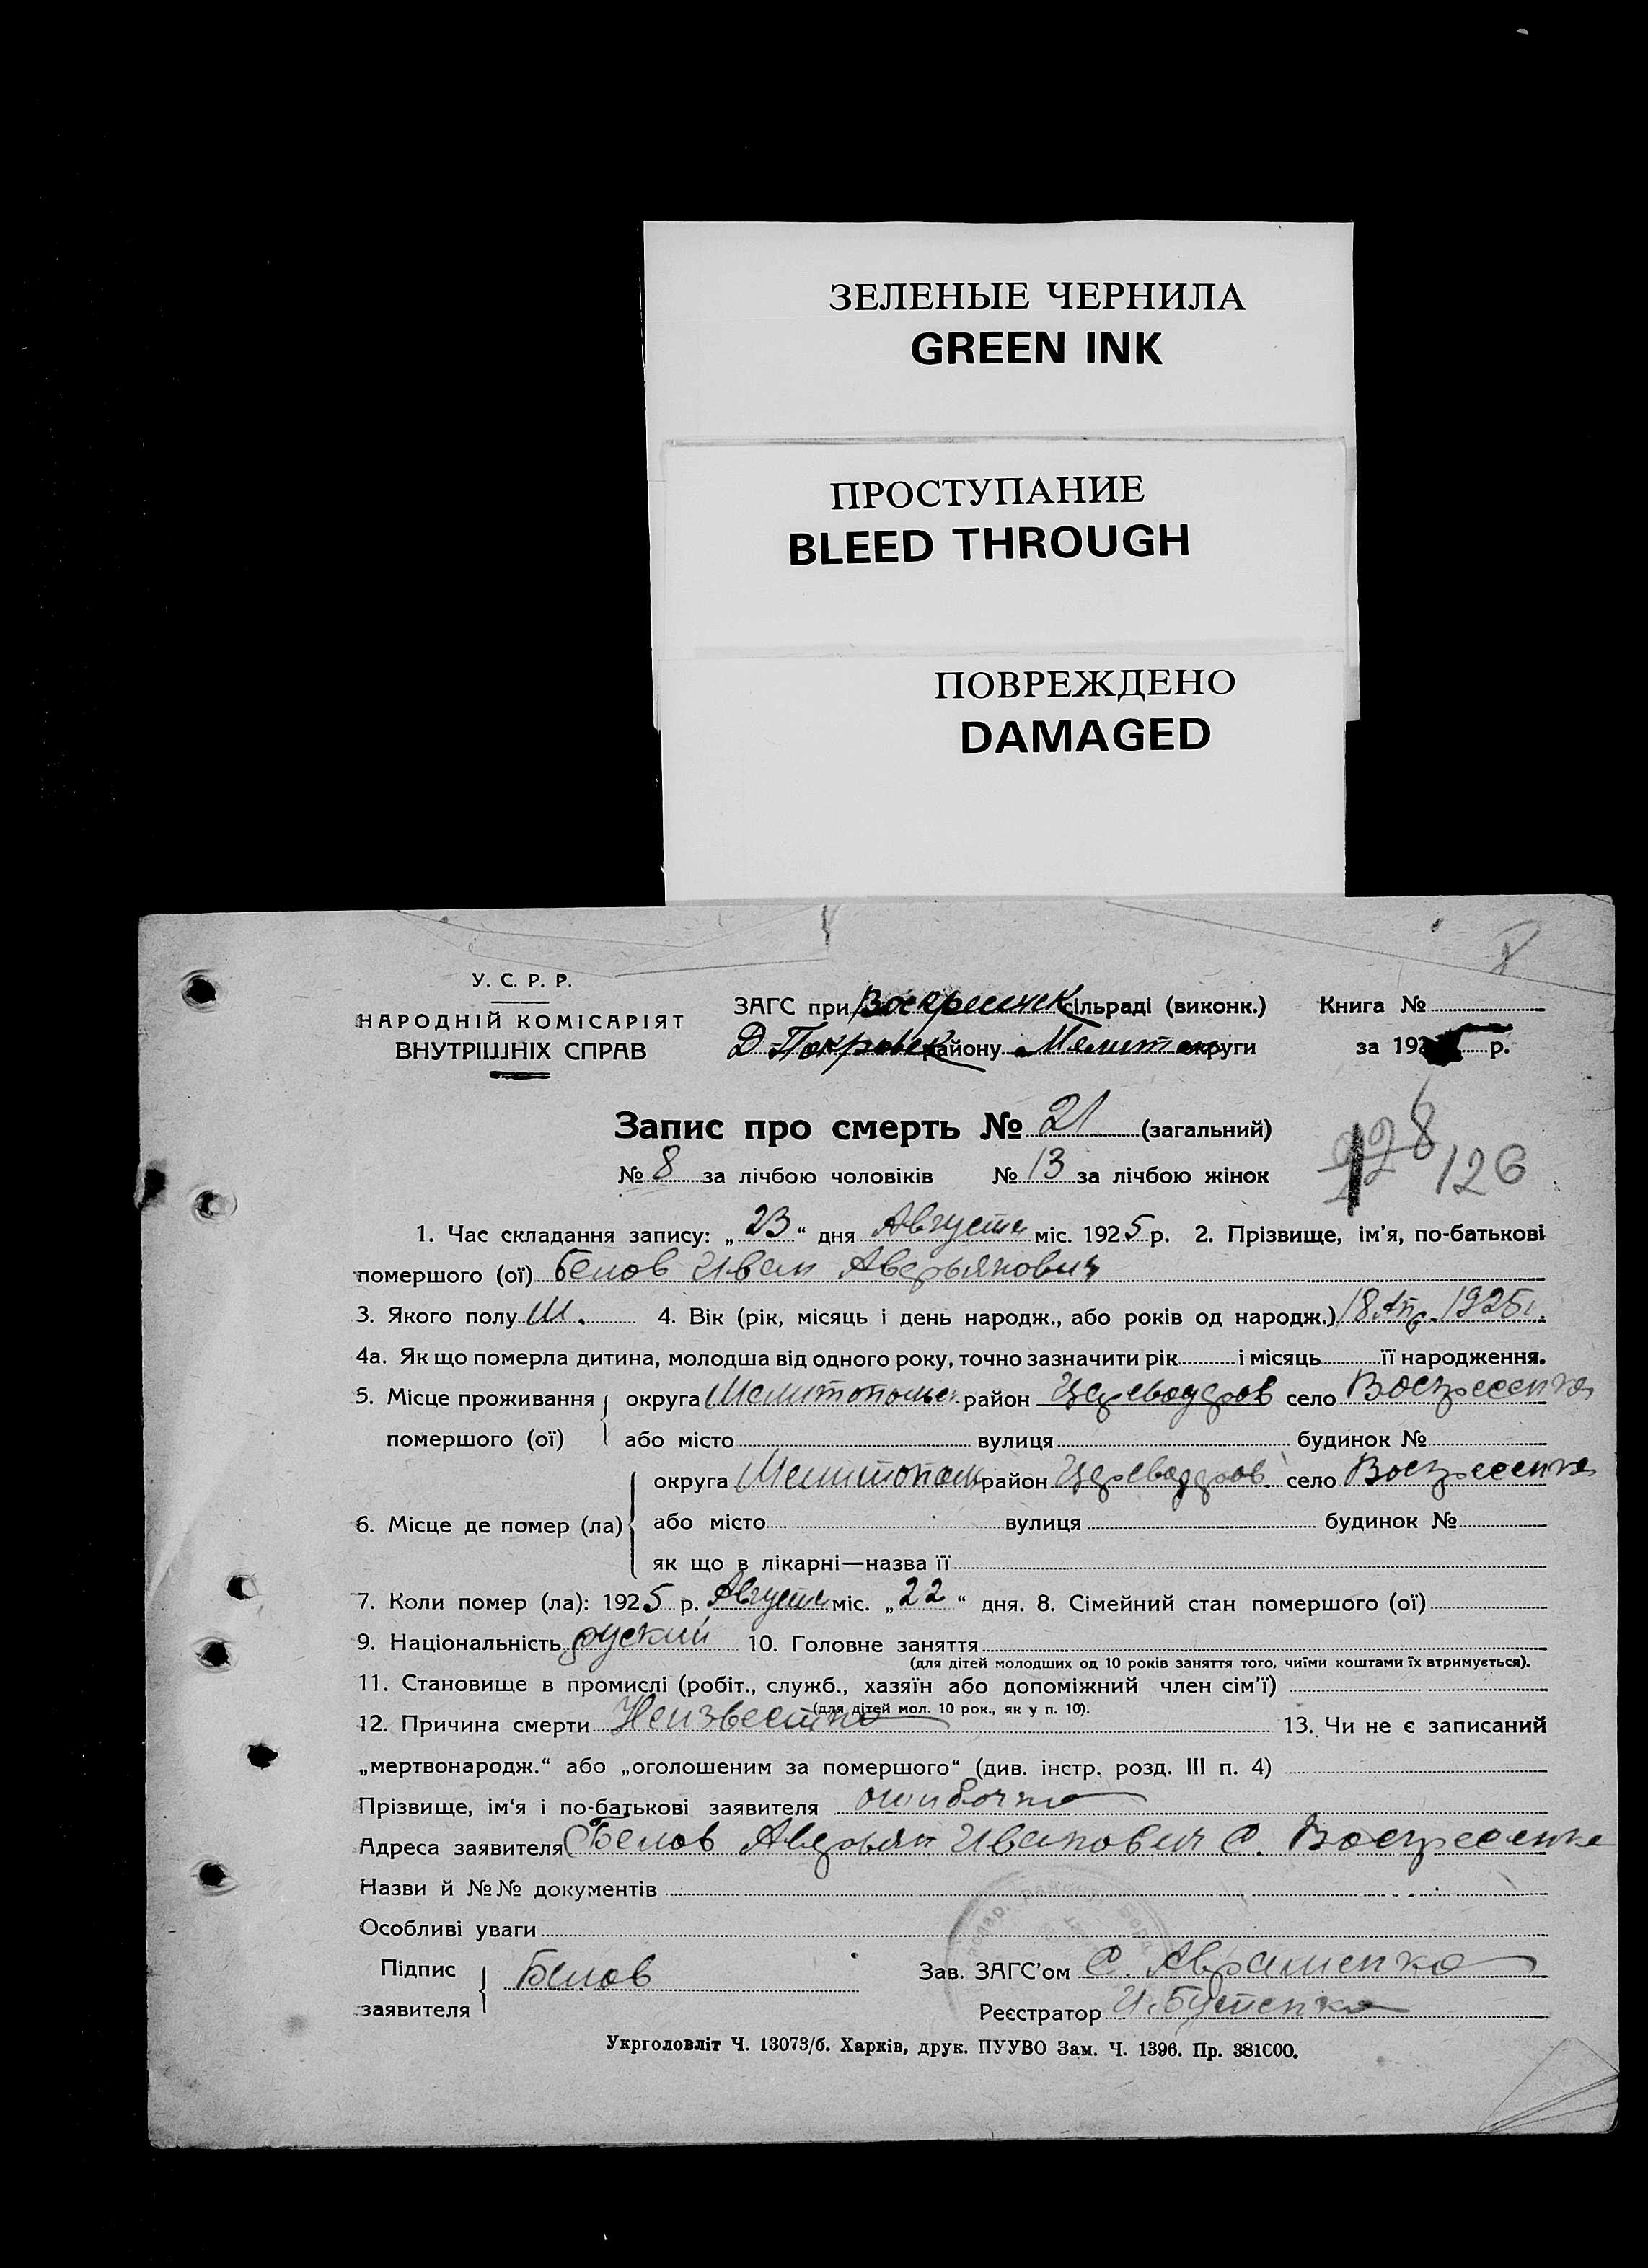 ЗЕЛЕНЫЕ ЧЕРНИЛА
GREEN INK
ПРОСТУПАНИЕ
BLEED THROUGH
ПОВРЕЖДЕНО
DAMAGED
У. С. Р. Р.
НАРОДНІЙ КОМІСАРІЯТ
ВНУТРІШНІХ СПРАВ
ЗАГС при Воскресенск сільраді (виконк.) Книга №
Д-Покровск району Мелитоп округи за 192 р.
Запис про смерть № 21 (загальний)
№ 8 за лічбою чоловіків № 13 за лічбою жінок
128 126
1. Час складання запису: „23“ дня Августа міс. 1925 р. 2. Прізвище, ім'я, по-батькові
помершого (ої) Белов Иван Аверьянович
3. Якого полу М. 4. Вік (рік, місяць і день народж., або років од народж.) 18 Апр. 1925 г.
4а. Як що померла дитина, молодша від одного року, точно зазначити рік і місяць її народження.
5. Місце проживання округа Мелитопольс район Цареводаров село Воскресенка
помершого (ої) або місто вулиця будинок №
округа Мелитополь район Цареводаров село Воскресенка
6. Місце де помер (ла) або місто вулиця будинок №
як що в лікарні—назва її
7. Коли помер (ла): 1925 р. Августа міс. „22“ дня. 8. Сімейний стан помершого (ої)
9. Національність руский 10. Головне заняття
(для дітей молодших од 10 років заняття того, чиїми коштами їх втримується).
11. Становище в промислі (робіт., служб., хазяїн або допоміжний член сім'ї)
(для дітей мол. 10 рок., як у п. 10).
12. Причина смерти Неизвестно 13. Чи не є записаний
„мертвонародж.“ або „оголошеним за помершого“ (див. інстр. розд. III п. 4)
Прізвище, ім'я і по-батькові заявителя ошибочно
Адреса заявителя Белов Аверьян Иванович с. Воскресенка
Назви й №№ документів
Особливі уваги
Підпис заявителя Белов Зав. ЗАГС'ом С. Авраменко
Реєстратор И. Бутенко
Укрголовліт Ч. 13073/б. Харків, друк. ПУУВО Зам. Ч. 1396. Пр. 381000.